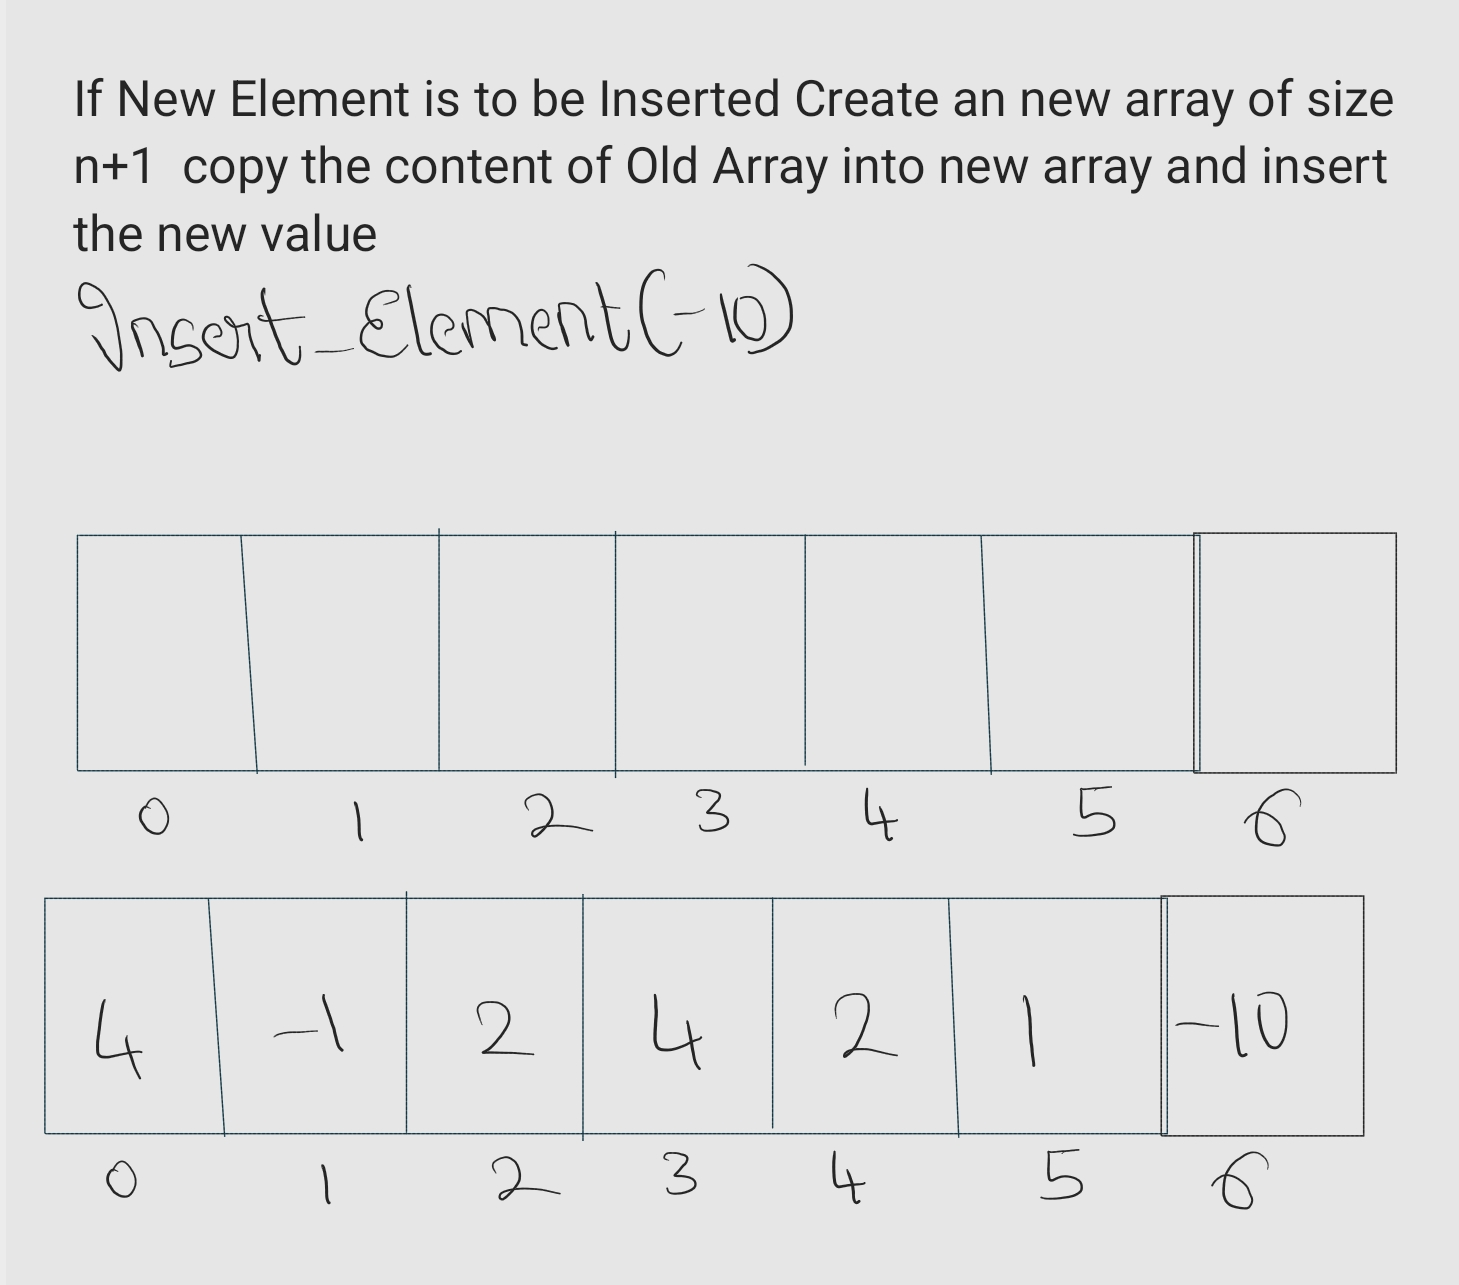 If New Element is to be Inserted Create an new array of size
n+1 copy the content of Old Array into new array and insert
the new value
Insert_Element(-10)
0 1 2 3 4 5 6
4 -1 2 4 2 1 -10
0 1 2 3 4 5 6